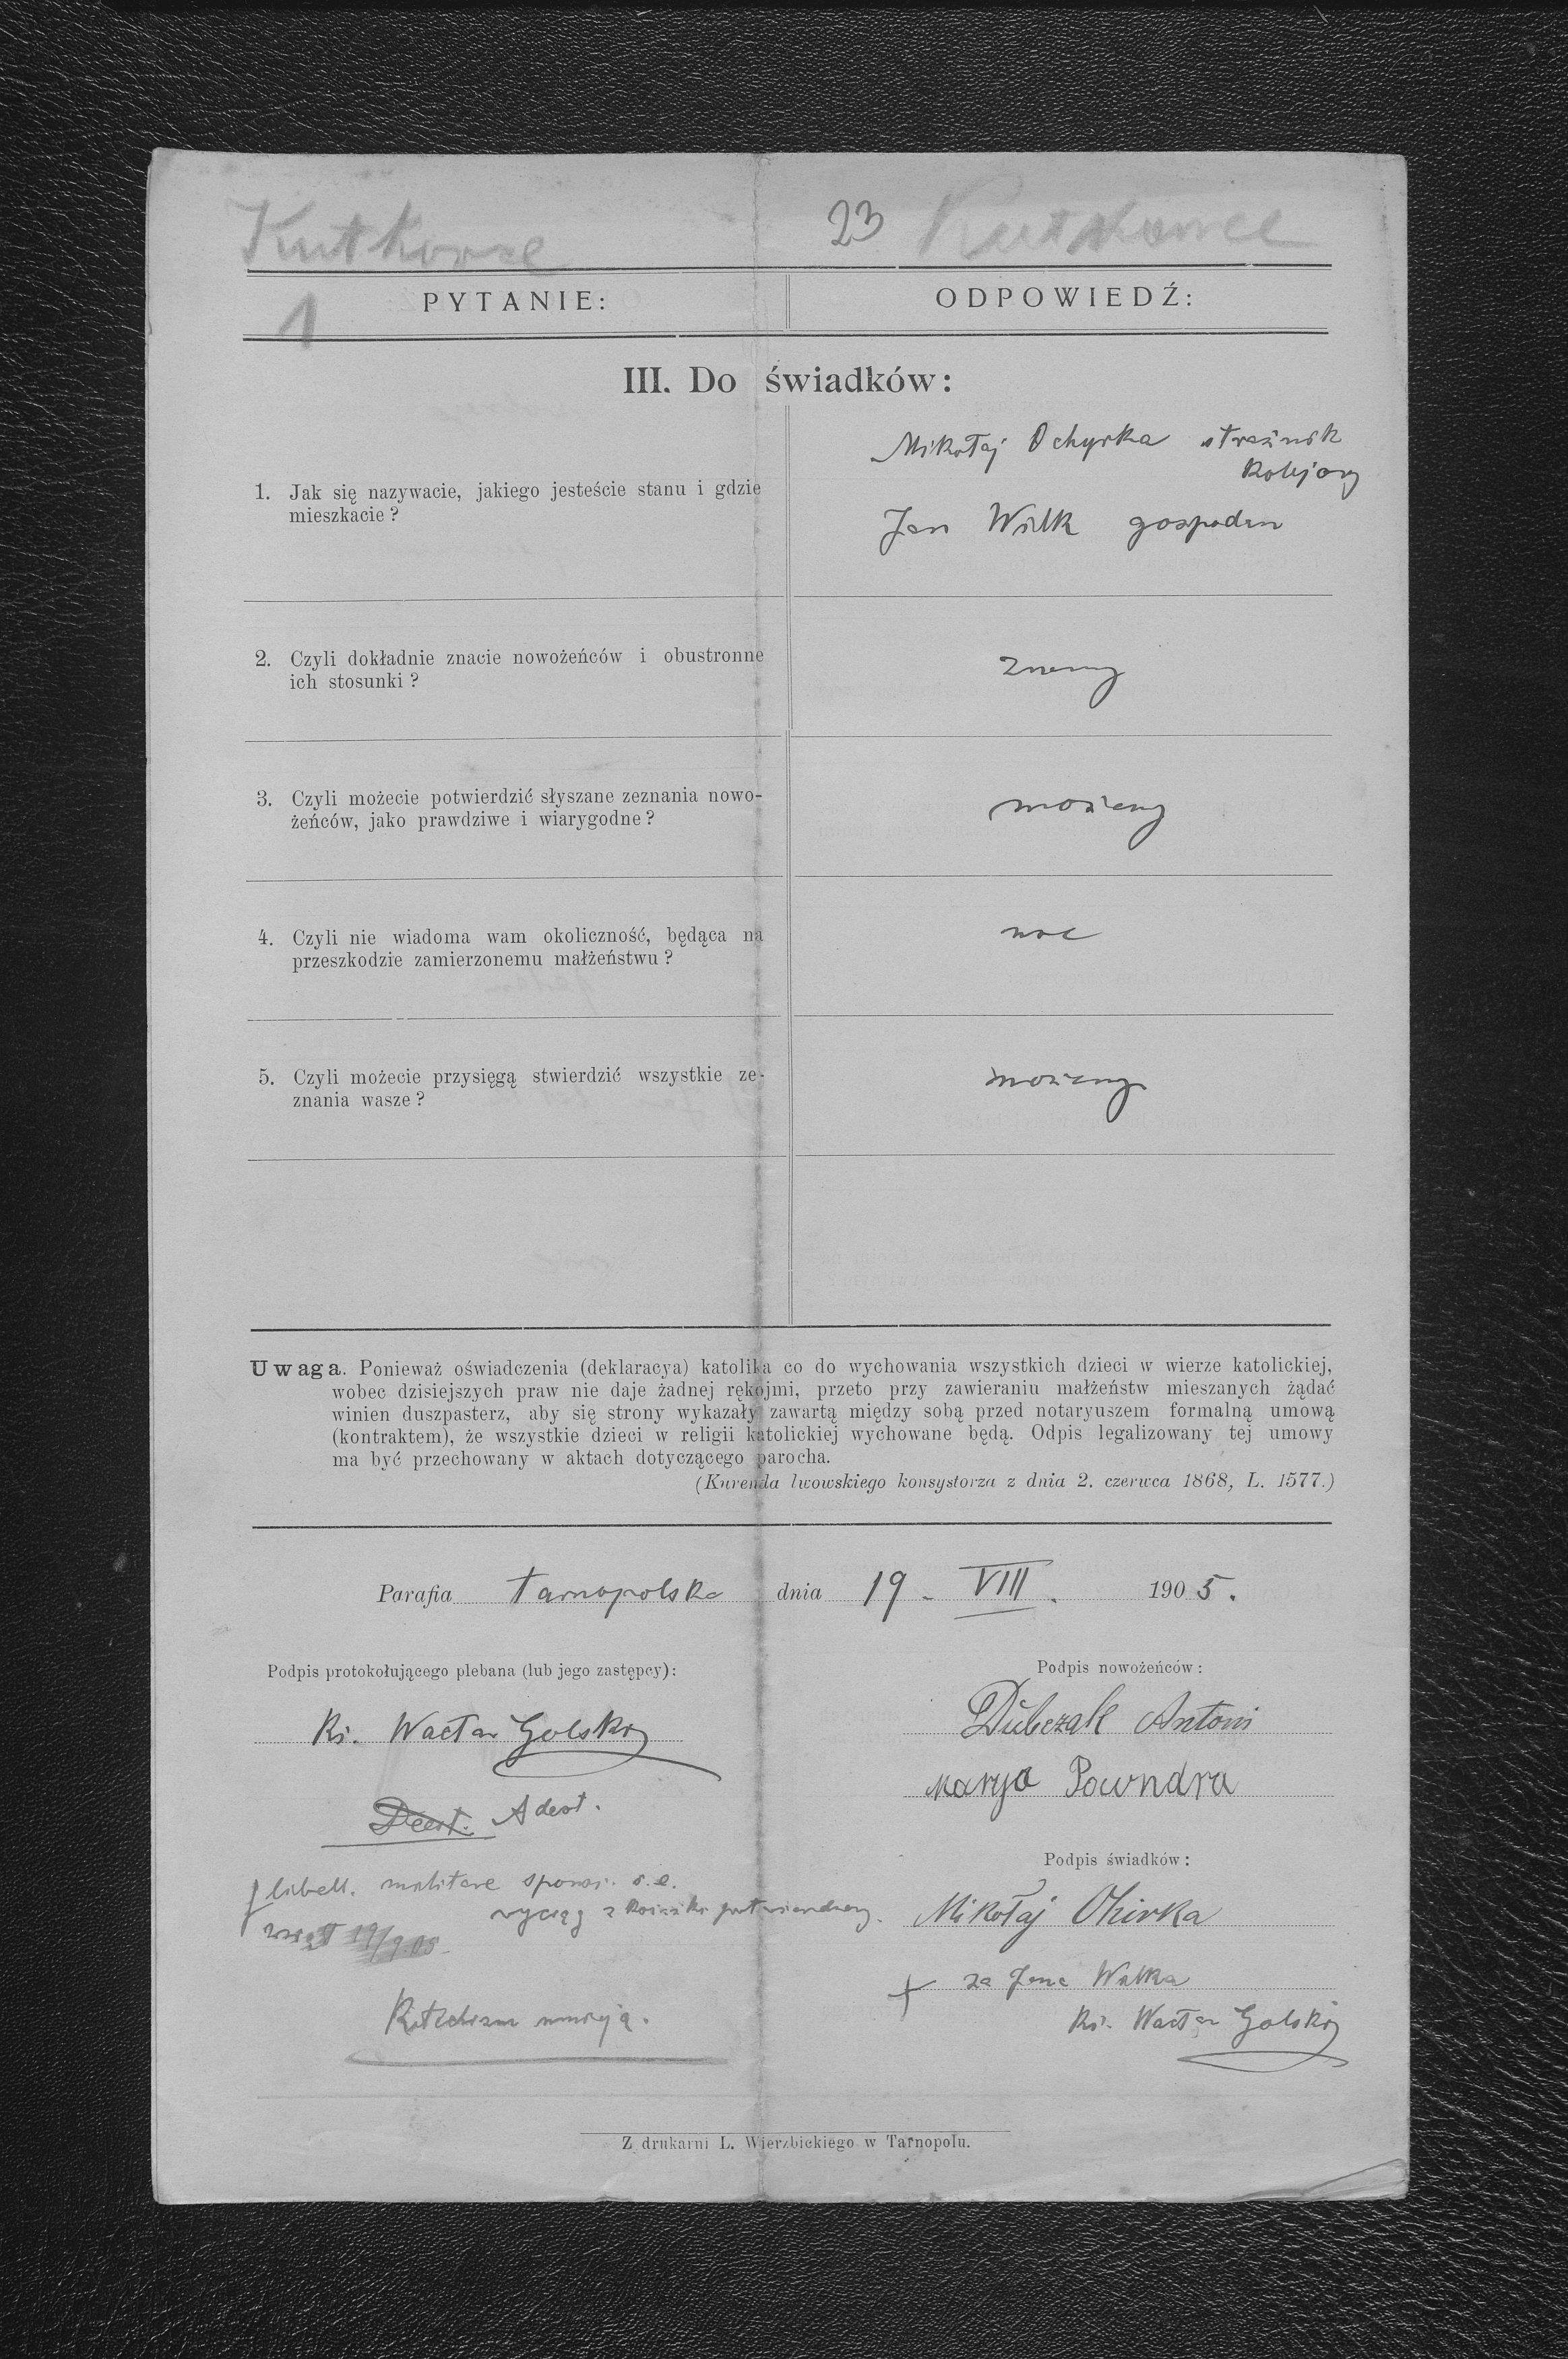 Kutkowce 23 Kutkowce
1
PYTANIE: ODPOWIEDŹ:
III. Do świadków:
1. Jak się nazywacie, jakiego jesteście stanu i gdzie
mieszkacie?
Mikołaj Ochyrka strażnik
kolejowy
Jan Wilk gospodarz
2. Czyli dokładnie znacie nowożeńców i obustronne
ich stosunki?
znamy
3. Czyli możecie potwierdzić słyszane zeznania nowo-
żeńców, jako prawdziwe i wiarygodne?
możemy
4. Czyli nie wiadoma wam okoliczność, będąca na
przeszkodzie zamierzonemu małżeństwu?
nie
5. Czyli możecie przysięgą stwierdzić wszystkie ze-
znania wasze?
możemy
Uwaga. Ponieważ oświadczenia (deklaracya) katolika co do wychowania wszystkich dzieci w wierze katolickiej,
wobec dzisiejszych praw nie daje żadnej rękojmi, przeto przy zawieraniu małżeństw mieszanych żądać
winien duszpasterz, aby się strony wykazały zawartą między sobą przed notaryuszem formalną umową
(kontraktem), że wszystkie dzieci w religii katolickiej wychowane będą. Odpis legalizowany tej umowy
ma być przechowany w aktach dotyczącego parocha.
(Kurenda lwowskiego konsystorza z dnia 2. czerwca 1868, L. 1577.)
Parafia tarnopolska dnia 19. VIII. 1905.
Podpis protokołującego plebana (lub jego zastępcy):
Ks. Wacław Golski
Deest. Adest.
libell. militare sponsi. s. e.
wyciąg z książki potwierdzony.
wziął 19/9 05.
Katechizm umieją.
Podpis nowożeńców:
Dubczak Antoni
Marya Powndra
Podpis świadków:
Mikołaj Ohirka
+ za Jana Wilka
Ks. Wacław Golski
Z drukarni L. Wierzbickiego w Tarnopolu.